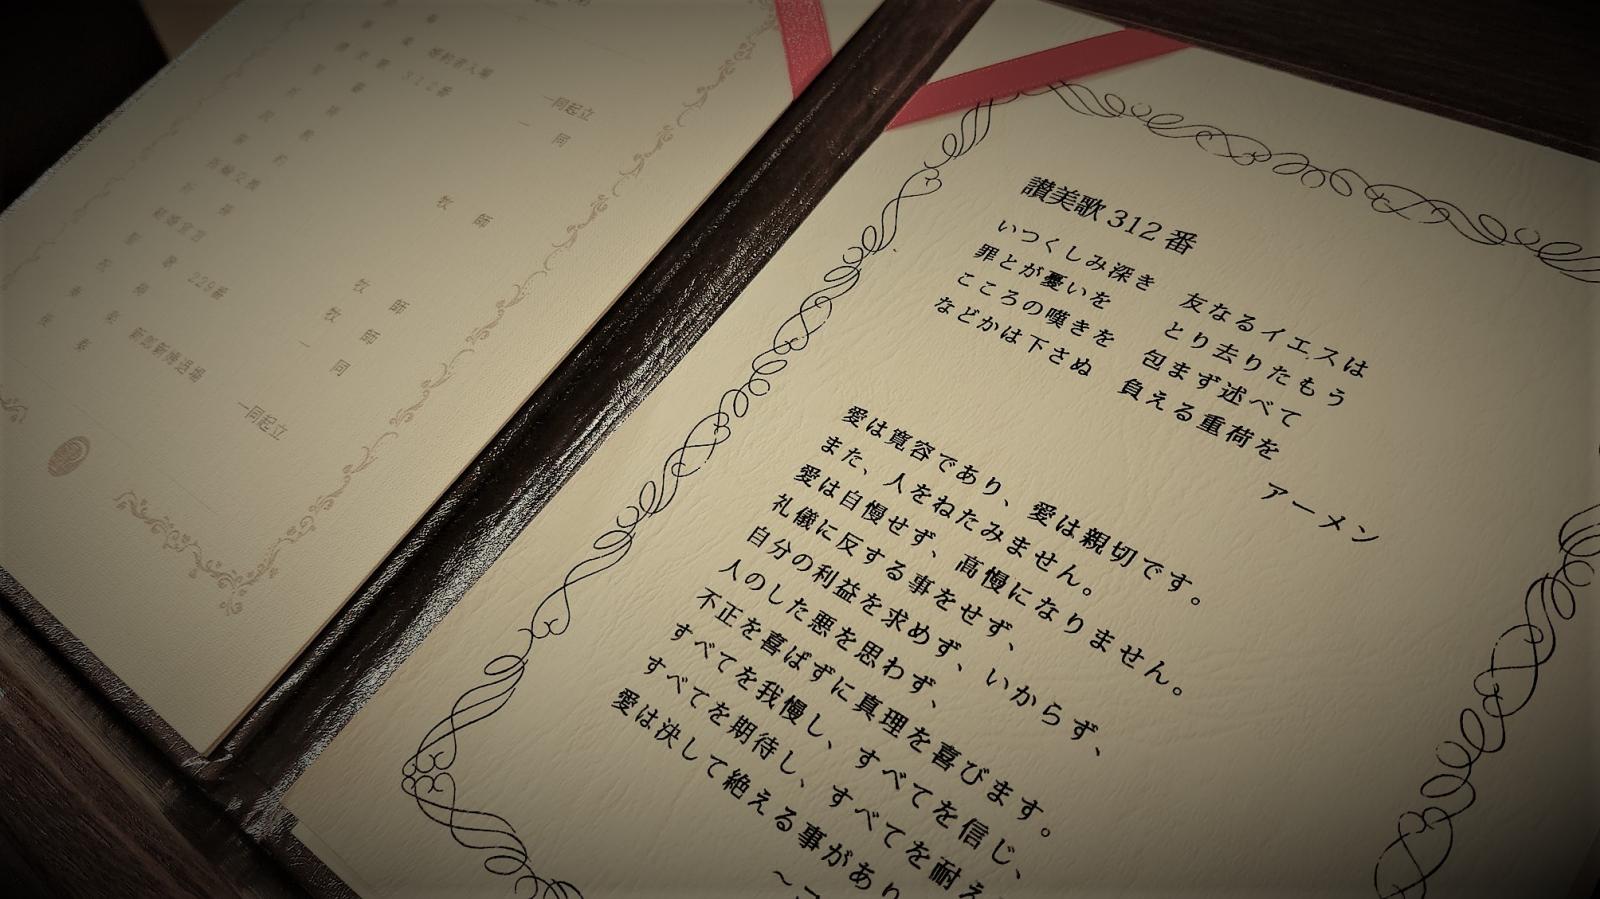 婚約者入場 一同起立
312番 一同
牧師
指輪交換
祈祷
結婚宣言 牧師
牧師
229番 一同
新郎新婦退場 一同起立
後奏
讃美歌 312 番
いつくしみ深き 友なるイエスは
罪とが憂いを とり去りたもう
こころの嘆きを 包まず述べて
などかは下さぬ 負える重荷を
アーメン
愛は寛容であり、愛は親切です。
また、人をねたみません。
愛は自慢せず、高慢になりません。
礼儀に反する事をせず、
自分の利益を求めず、いからず、
人のした悪を思わず、
不正を喜ばずに真理を喜びます。
すべてを我慢し、すべてを信じ、
すべてを期待し、すべてを耐え
愛は決して絶える事があり